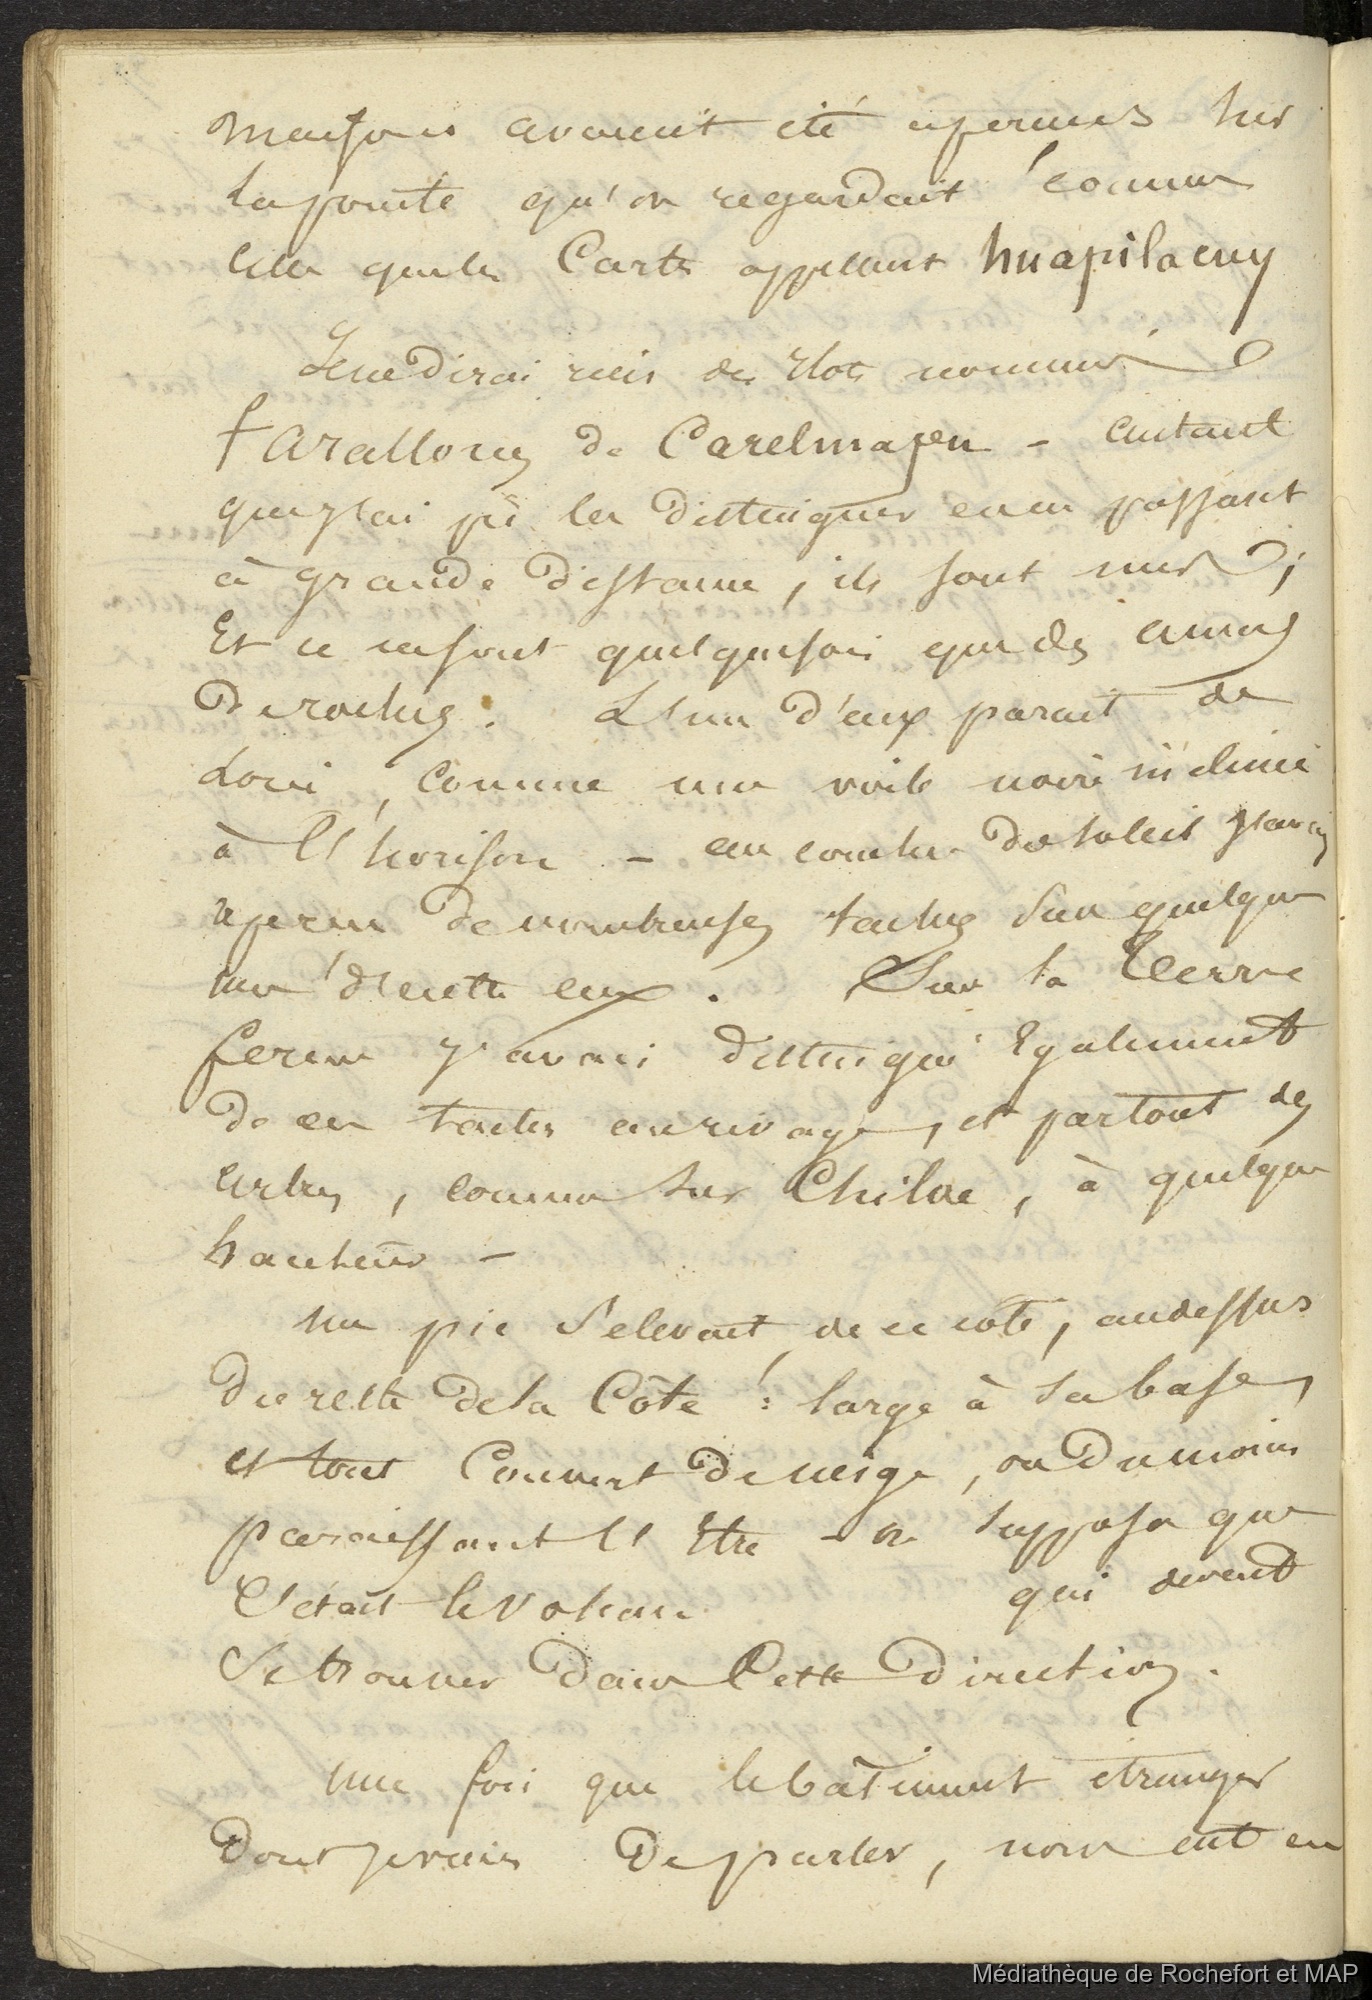 maisons avaient été aperçues sur
la pointe qu'on regardait comme
celle que les Cartes appellent huapilacuy
Je ne dirai rien des Ilots nommés
farallones de Carelmapen - autant
que j'ai pû les distinguer en en passant
à grande distance, ils sont nuds;
Et ce ne sont quelquefois que des amas
de roches. L'un d'eux parait de
loin, comme une voile noire inclinée
à l'horison - au coucher du soleil j'avais
aperçu de nombreuses taches sur quelques
uns d'entre eux. Sur la Terre
ferme j'avais distingué Egalement
de ces taches au rivage, et partout des
arbres, comme sur Chiloe, à quelque
hauteur -
un pic s'elevait de ce coté, audessus
du reste de la Côte : large à sa base,
et tout Couvert de neige, ou du moins
paraissant l'Etre - on supposa que
C'etait le volcan qui devait
se trouver dans Cette direction.
une fois que le bâtiment étranger
dont je viens de parler, nous eut en
Médiathèque de Rochefort et MAP